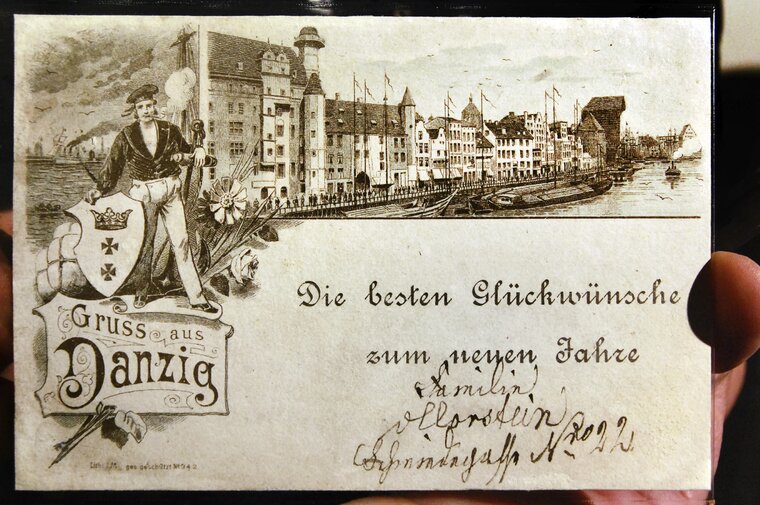 Gruss aus
Danzig
Die besten Glückwünsche
zum neuen Jahre
Familie
Schmiedegasse Nro 22
ges. geschützt No 942